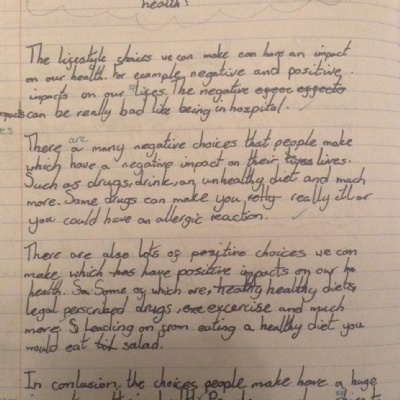 health?
The ligestyle choices we can make can have an impact
on our health. For example, negative and positive
impacts on our lives. The negative effects
impacts can be really bad like being in hospital.
There are many negative choices that people make
which have a negative impact on their lives.
Such as drugs, drink, an unhealthy diet and much
more. Some drugs can make you really ill or
you could have an allergic reaction.
There are also lots of positive choices we can
make which have positive impacts on our
health. Some of which are, healthy diets,
legal perscribed drugs, excercise and much
more. Leading on from eating a healthy diet you
would eat salad.
In conlusion, the choices people make have a huge